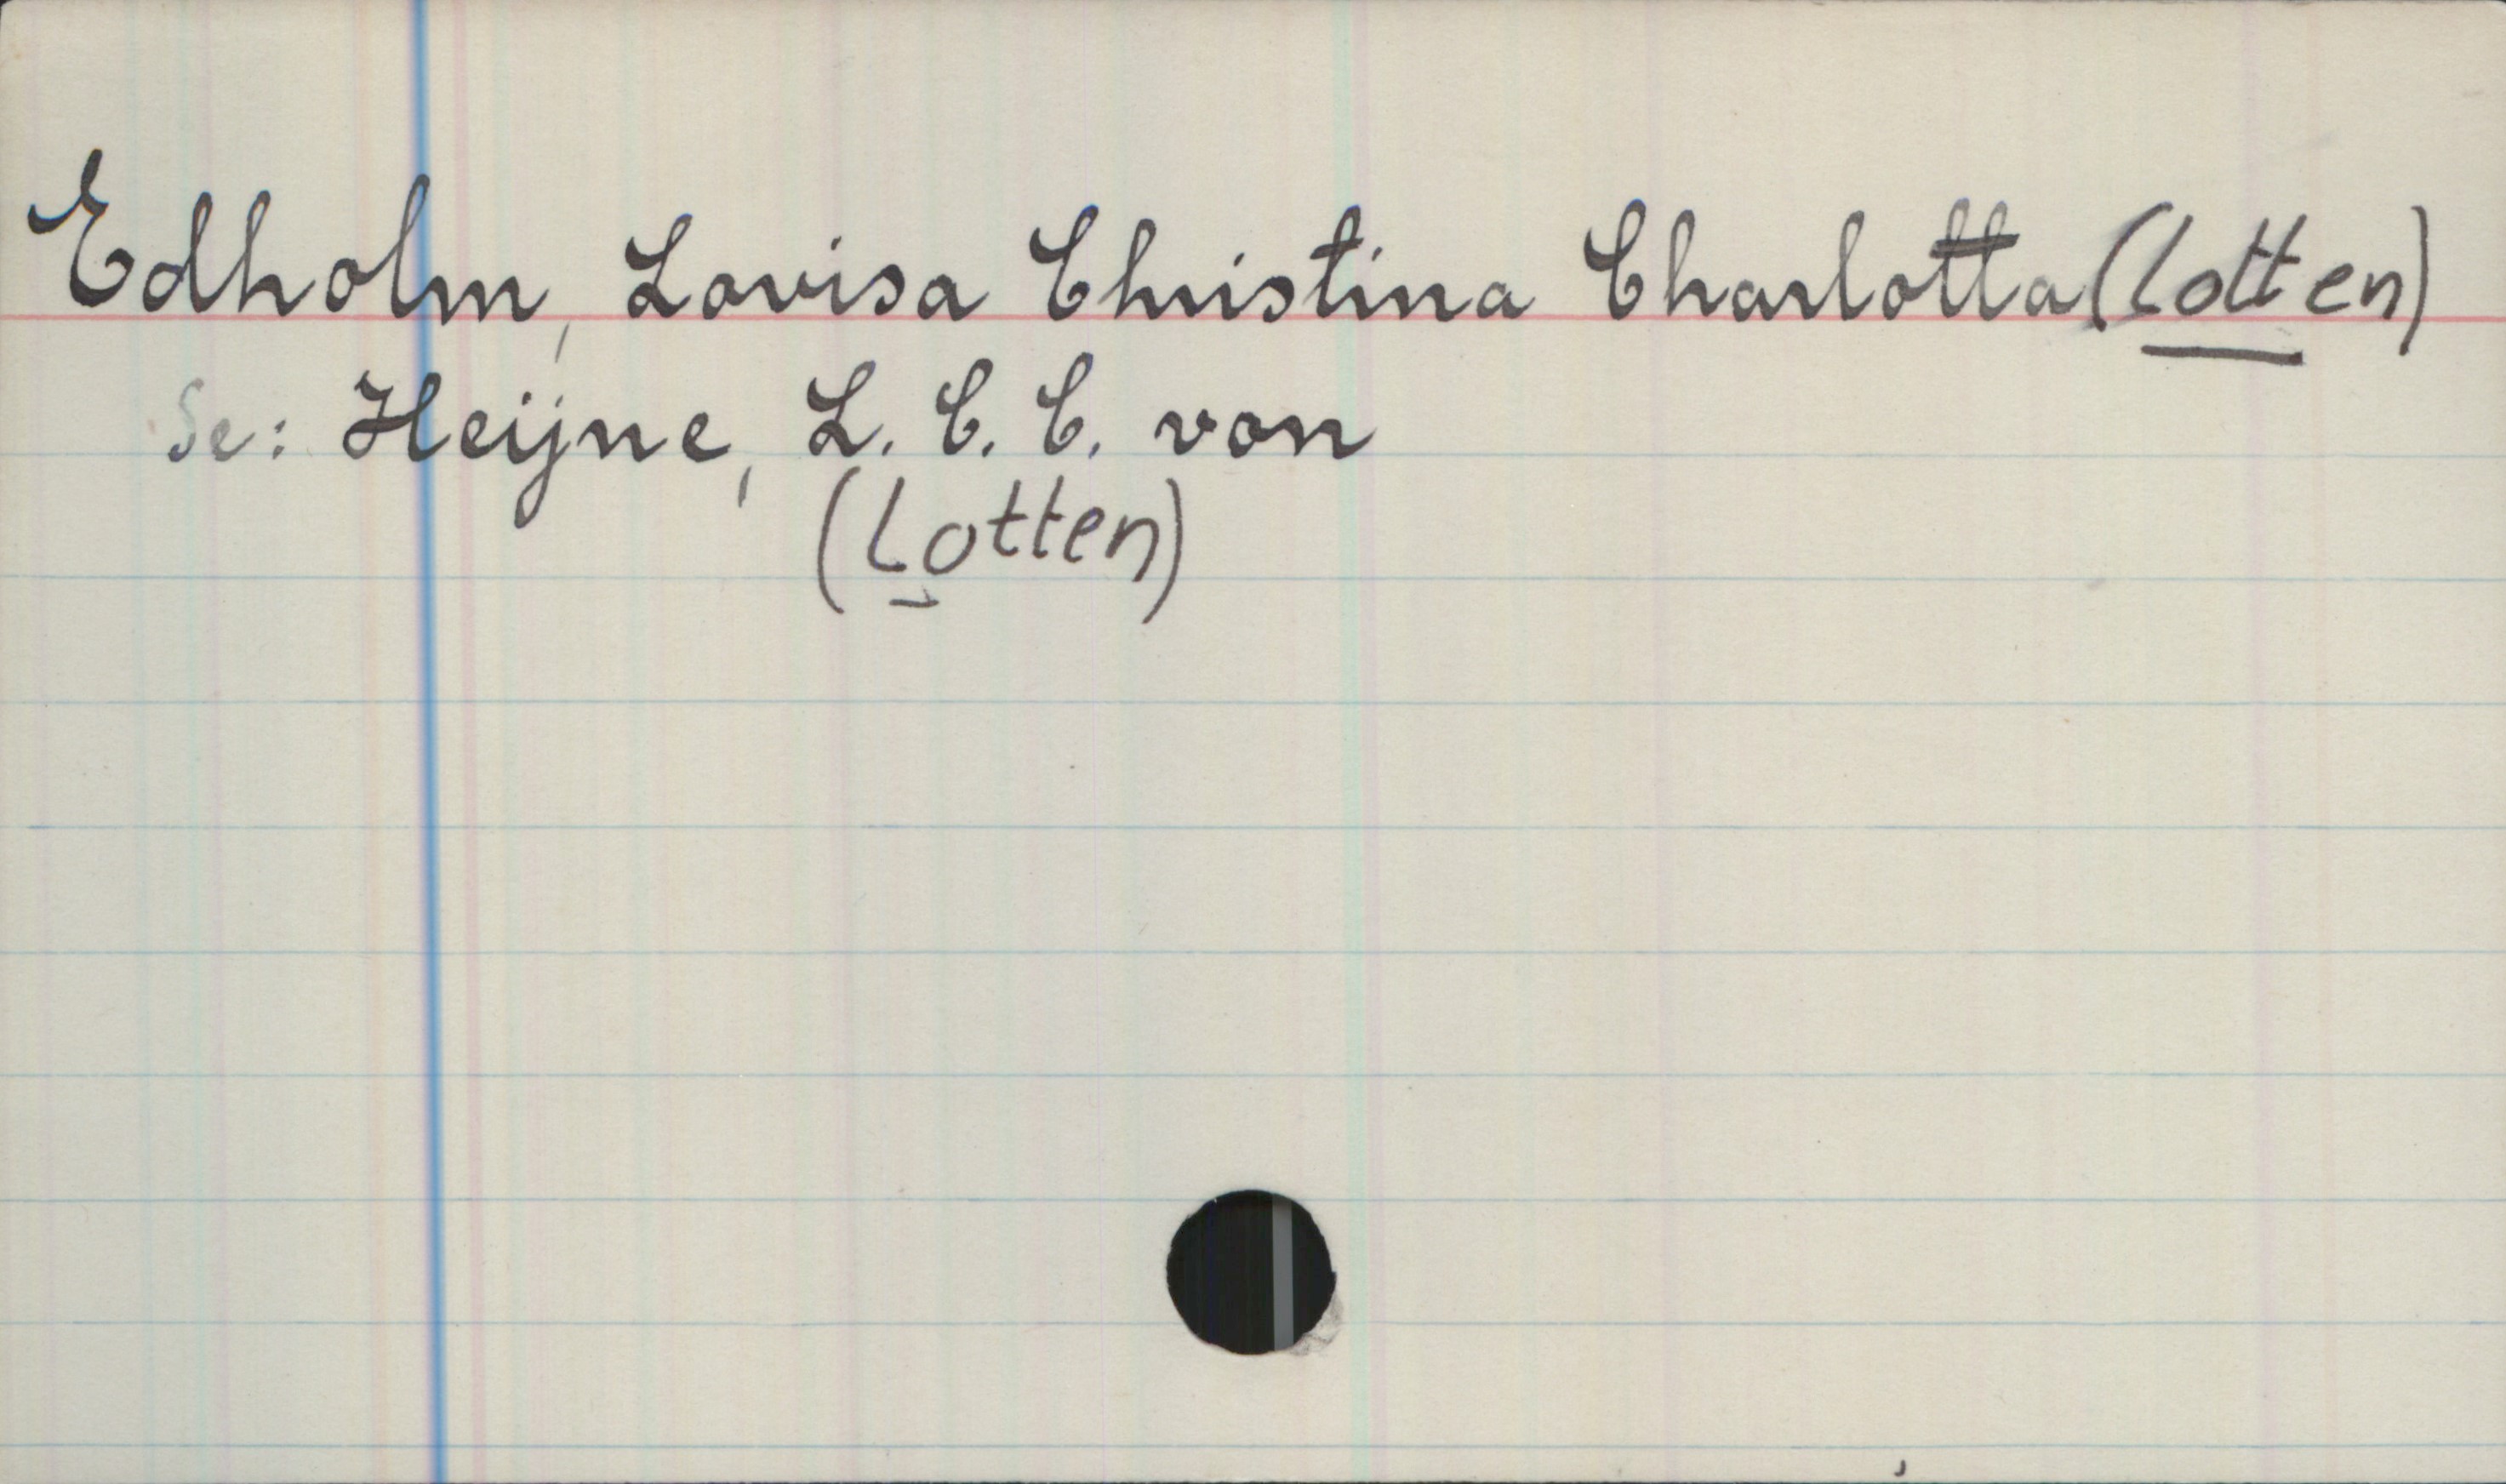 Edholm, Lovisa Christina Charlotta (Lotten)
Se: Heijne, L. C. C. von
(Lotten)